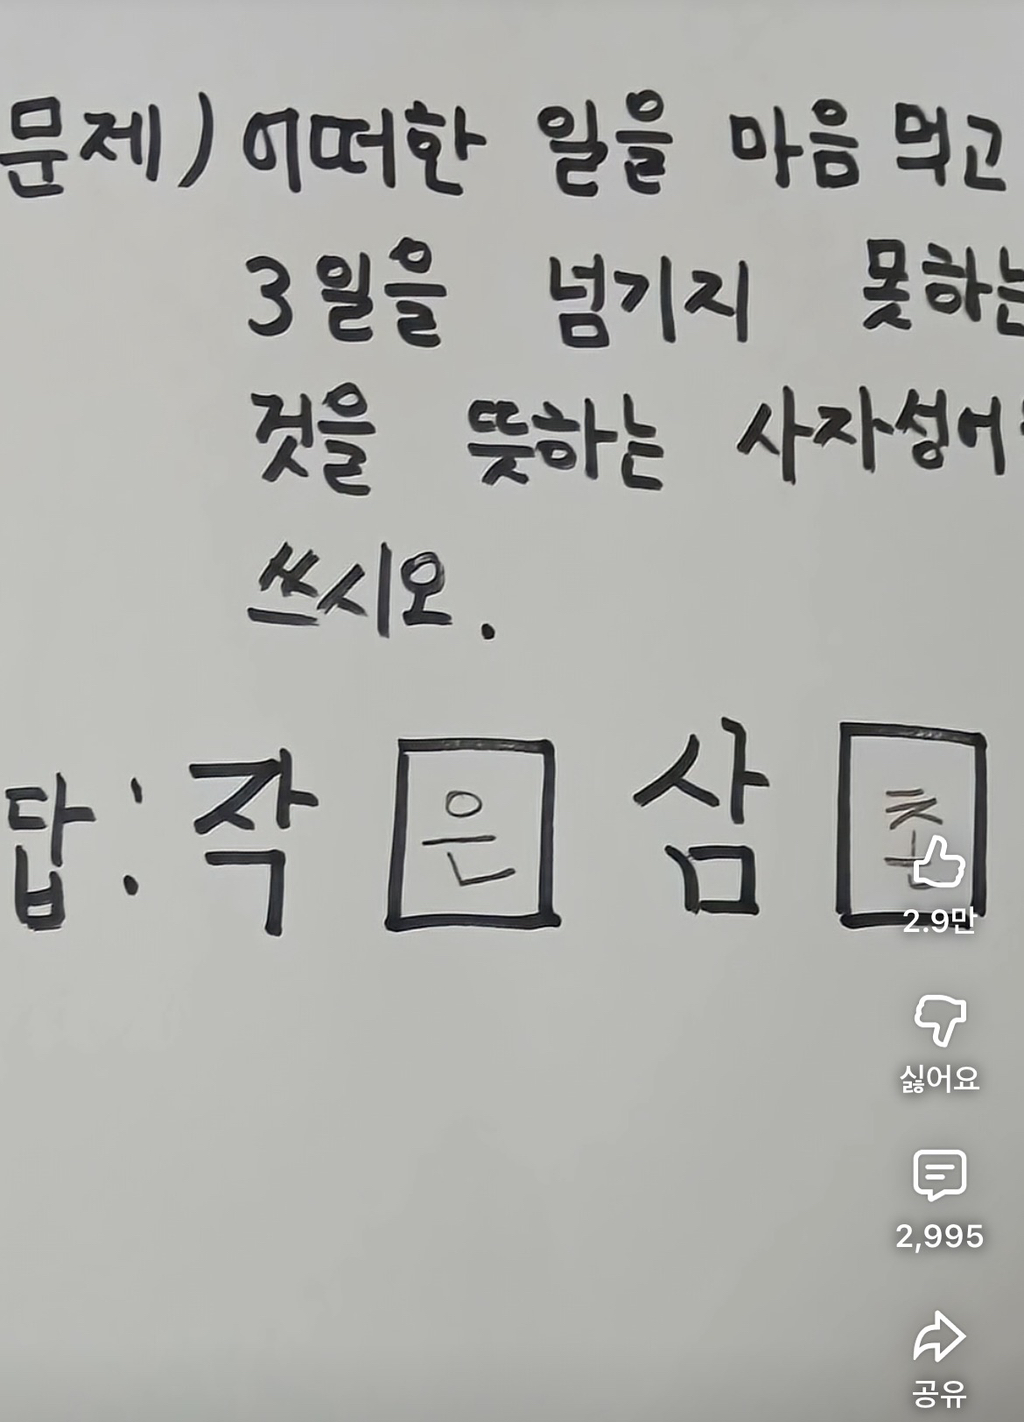 문제) 어떠한 일을 마음 먹고
3일을 넘기지 못하는
것을 뜻하는 사자성어
쓰시오.
답: 작 은 삼 촌
2.9만
싫어요
2,995
공유